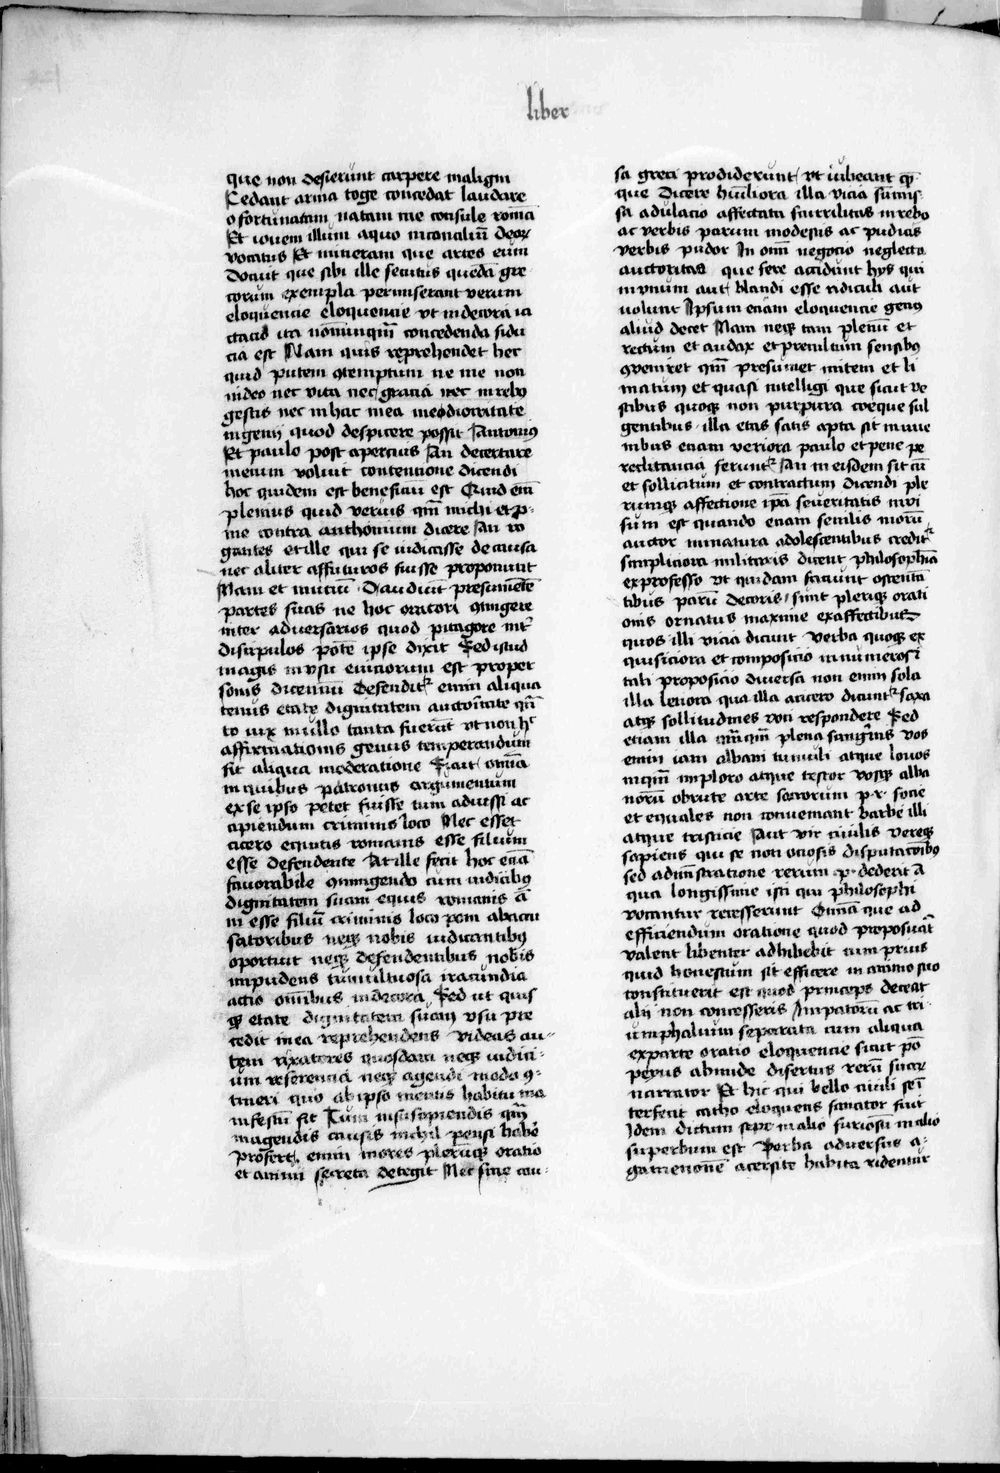 liber
que non desierunt carpere maligni
Cedant arma toge concedat laudare
o fortunatam natam me consule romā
Et iouem illum a quo in concaliū deoꝝ
vocatus Et mineruam que artes eum
docuit que sibi ille secutus quedā gre
corum exempla permiserant verum
eloquencie eloquencie vt indecora ia
ctacio ita nōnunqm̄ concedenda fidu
cia est Nam quis reprehendet hec
quid putem ꝯtemptum ne me non
video nec vita nec gracia nec in rebꝰ
gestis nec in hac mea mediocritate
ingenij quod despicere possit Iantonius
Et paulo post apercius An decertare
mecum voluit contencione dicendi
hoc quidem est beneficiū est Quid em̄
plenius quid verius qm̄ michi et ꝓ
me contra anthonium dicere An ro
gantes et ille qui se iudicasse de causa
nec aliter affuturos fuisse proponunt
Nam et inuiti audiunt presumētē
partes suas ne hoc oratori ꝯtingere
inter aduersarios quod pitagore int̄
discipulos potē ipse dixit Sed istud
magis in vsu viciorum est proper
sonis dicentiū defendit᷑ enim aliqua
tenus etate dignitatem auctoritate qn̄
to vix in ullo tanta fuerūt vt non hͨ
affirmationis genus temperandum
sit aliqua moderatione Siaut omīa
in quibus patronus argumentum
ex se ipso petet fuisse tum aduissi ac
cipiendum criminis loco Nec esset
cicero equitis romanis esse filium
esse defendente At ille fecit hoc eciā
fauorabile ꝯiungendo cum iudicibꝰ
dignitatem suam equis romanis ā
ni esse filiū criminis loco poni abaccu
satoribus neqꝫ nobis iudicantibꝰ
oportuit neqꝫ defendentibus nobis
impudens tumultuosa iracundia
actio omībus indecora Sed ut quis
qꝫ etate dignitatem suam vsu pre
cedit in ea reprehendens videas au-
tem rixatores quosdam neqꝫ iudici-
um reserencia neqꝫ agendi modo ꝯ-
tineri quo ab ipso mentis habitu ma
infestū fit Tum in suscipiendis qm̄
in agendis causis nichil pensi habē
profert enim mores plerūqꝫ oratio
et animi secreta detegit Nec sine cau-
sa greci prodiderunt vt iubeant qꝫ
que dicere humiliora illa vicia sūmis
sa adulacio affectata scurrilitas in rebꝰ
ac verbis parum modestis ac pudicis
verbis pudor In omī negocio neglecta
auctoritas que fere accidunt hys qui
nimium aut blandi esse ridiculi aut
volunt Ipsum eciam eloquencie genus
aliud decet Nam neqꝫ tam plenū et
rectum et audax et precultum senibꝰ
ꝯvenret qm̄ presumet mitem et li
matum et quasi intelligi que sicut ve
stibus quoqꝫ non purpura coeque ful
gentibus illa etas satis apta sit in iuue
nibus eciam veriora paulo et pene pe
reclitancia ferunt᷑ An in eisdem sit cū
et sollicitum et contractum dicendi ple
rumqꝫ affectione ip̄a seueritatis invi
sum est quando eciam senilis morū
auctor in natura adolescentibus credit᷑
simpliciora militaris dicent philosophiā
ex professo vt quidam faciunt ostenta
tibus parū decoris sunt pleriqꝫ orati
onis ornatus maxime ex affectibus
quos illi vicia dicunt verba quoqꝫ ex
quisiciora et composicio innumerosi
tati proposicio diuersa non enim sola
illa leuiora qua illa acicero dicunt᷑ saxa
atqꝫ sollitudines voci respondere Sed
eciam illa qm̄qm̄ plena sangīnis vos
enim iam albani tumuli atque louos
inqm̄ imploro atque testor vosqꝫ alba
norū obrute arte sacrorum p.r. socie
et equales non conueniant barbe illi
atque tristicie Aut vir ciuilis vereqꝫ
sapiens qui se non ociosis disputacōibꝰ
sed administratione rerum p. dederit ā
qua longissime isti qui philosophi
vocantur recesserunt Omnia que ad
efficiendum oratione quod proposuāt
valent libenter adhibebit cum prius
quid honestum sit efficere in animo suo
constituerit est quod princeps deceat
alij non concesseris Impatorū ac tri
umphalium seperata cum aliqua
exparte oratio eloquencie sicut pō
peyus abunde disertus rerū suarꝫ
narrator Et hic qui bello ciuili sei
terfecit catho eloquens senator fuit
Idem dictum sepe in alio furiosū in alio
superbum est Verba aduersus a-
gamenonē acersite habita ridentur